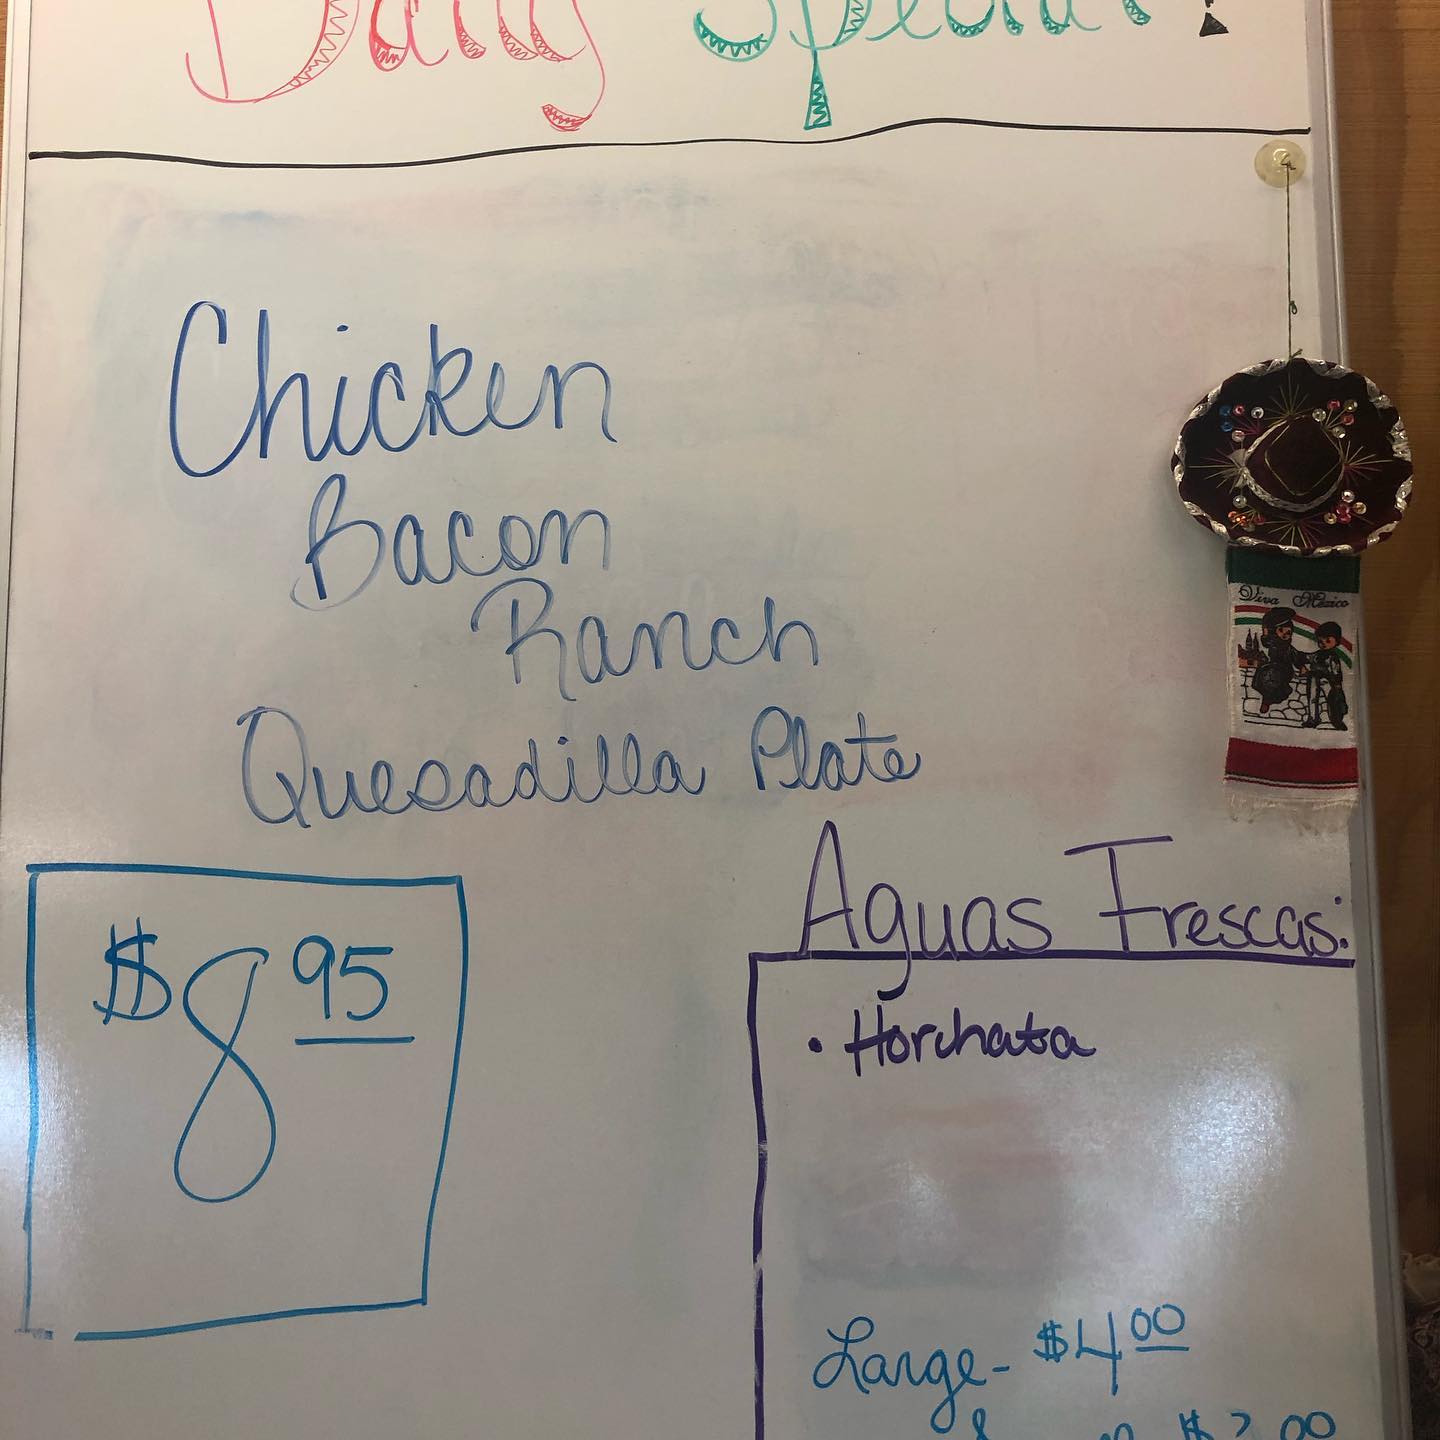 Daily Special!
Chicken
Bacon
Ranch
Quesadilla Plate
$8.95
Viva Mexico
Aguas Frescas:
• Horchata
Large - $4.00